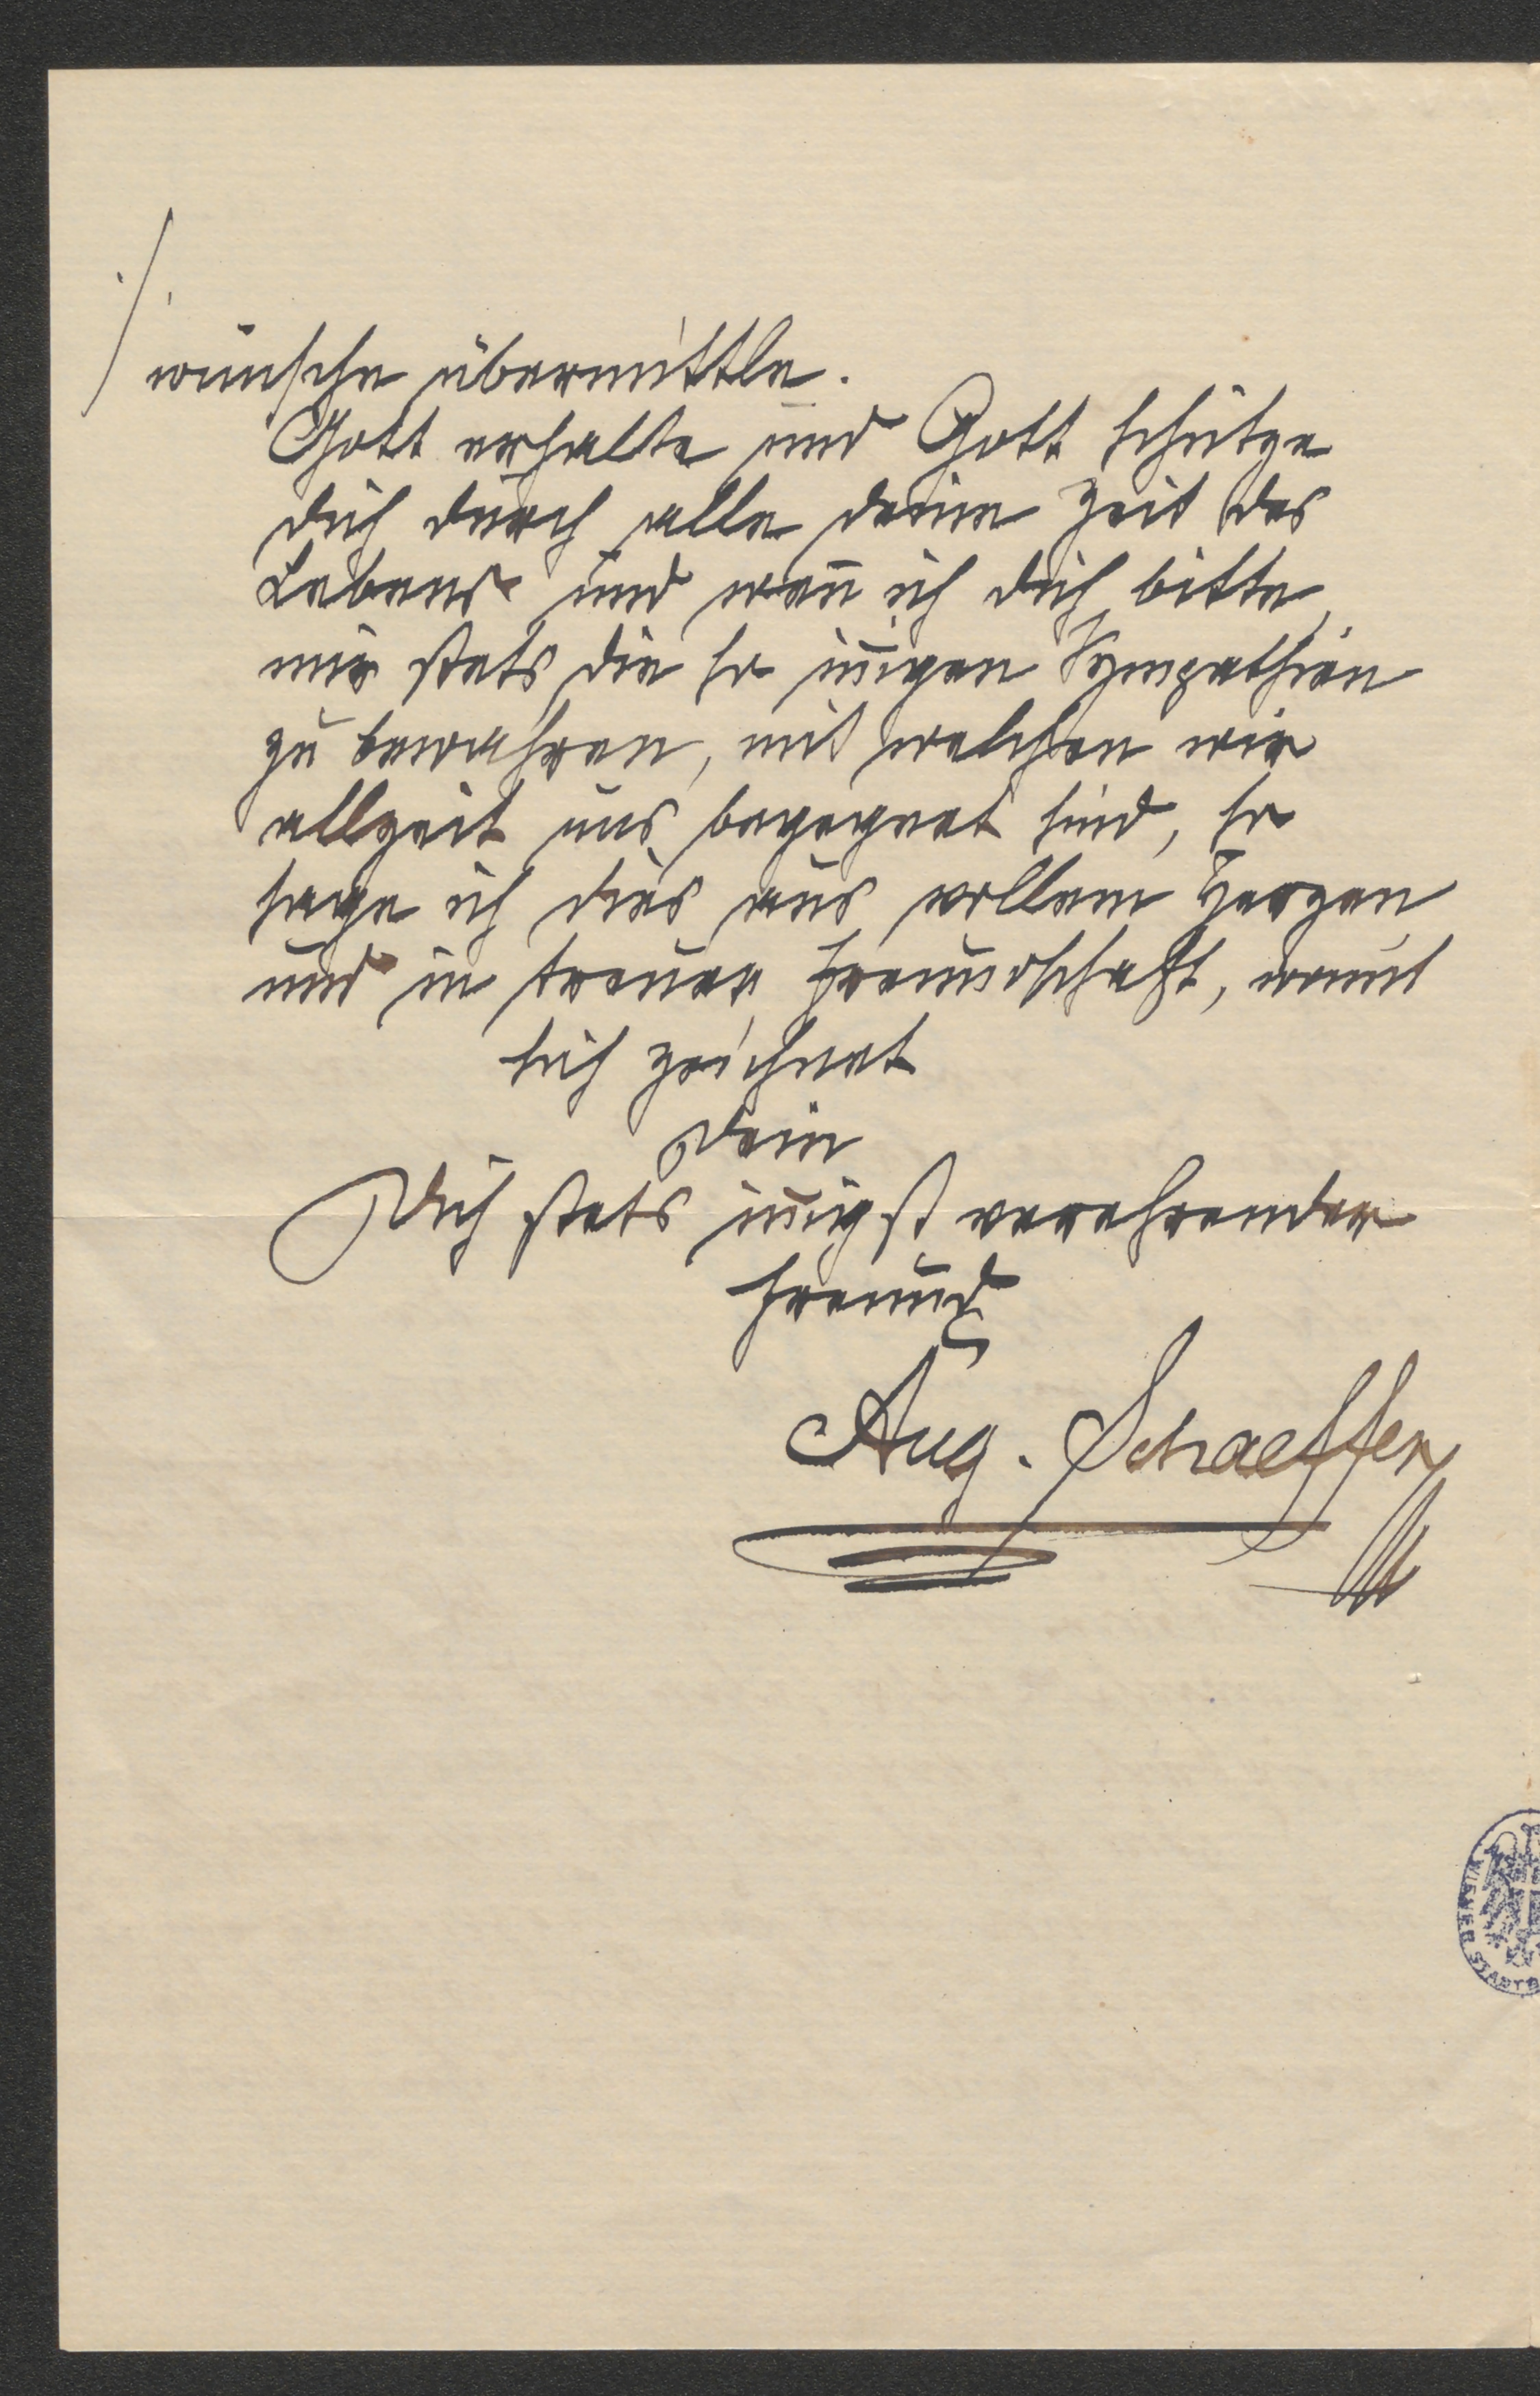 ./.
wünsche übermittle.
Gott erhalte und Gott schütze
dich durch alle deine Zeit des
Lebens und wen̄ ich dich bitte,
mir stets die so in̄igen Sympathien
zu bewahren, mit welchen wir
allzeit uns begegnet sind, so
sage ich dies aus vollem Herzen
und in treuer Freundschaft, womit
sich zeichnet
Dein
Dich stets in̄igst verehrender
Freund
Aug. Schaeffer
WIENER STADTB